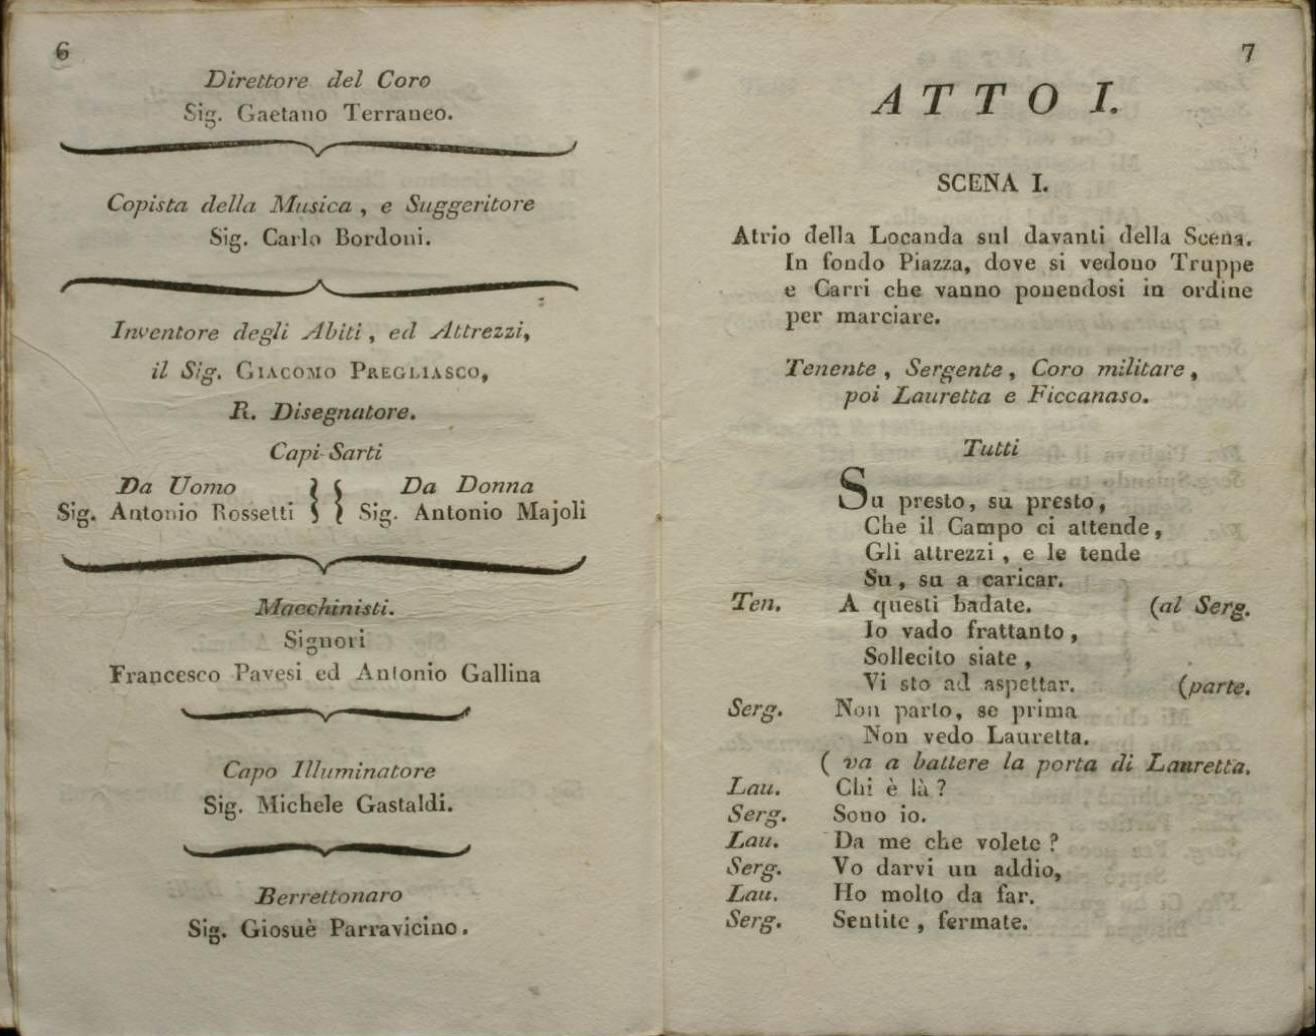 6
Direttore del Coro
Sig. Gaetano Terraneo.
Copista della Musica , e Suggeritore
Sig. Carlo Bordoni.
Inventore degli Abiti , ed Attrezzi,
il Sig. GIACOMO PREGLIASCO,
R. Disegnatore.
Capi-Sarti
Da Uomo Da Donna
Sig. Antonio Rossetti Sig. Antonio Majoli
Macchinisti.
Signori
Francesco Pavesi ed Antonio Gallina
Capo Illuminatore
Sig. Michele Gastaldi.
Berrettonaro
Sig. Giosuè Parravicino.
7
ATTO I.
SCENA I.
Atrio della Locanda sul davanti della Scena.
In fondo Piazza, dove si vedono Truppe
e Carri che vanno ponendosi in ordine
per marciare.
Tenente , Sergente , Coro militare ,
poi Lauretta e Ficcanaso.
Tutti
Su presto, su presto,
Che il Campo ci attende,
Gli attrezzi , e le tende
Su, su a caricar.
Ten. A questi badate. (al Serg.
Io vado frattanto ,
Sollecito siate ,
Vi sto ad aspettar. (parte.
Serg. Non parto, se prima
Non vedo Lauretta.
( va a battere la porta di Lauretta.
Lau. Chi è là ?
Serg. Sono io.
Lau. Da me che volete ?
Serg. Vo darvi un addio,
Lau. Ho molto da far.
Serg. Sentite , fermate.